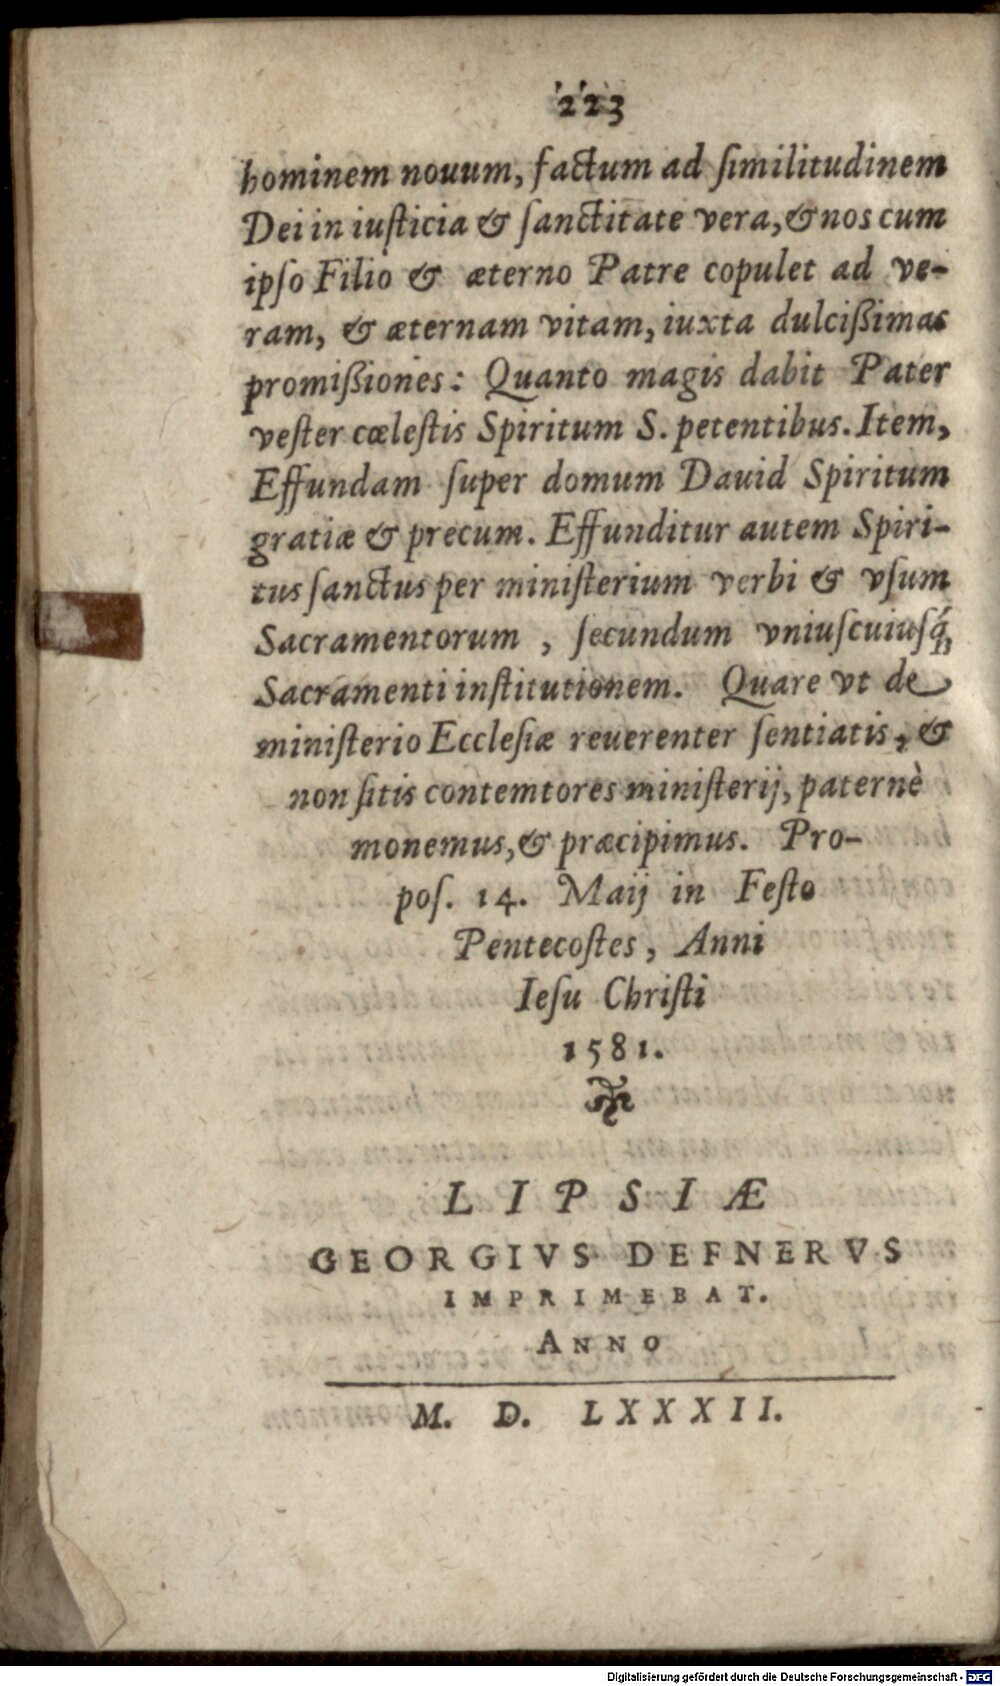 223
hominem nouum, factum ad ſimilitudinem
Dei in iuſticia & ſanctitate vera, & nos cum
ipſo Filio & æterno Patre copulet ad ve-
ram, & æternam vitam, iuxta dulcißimas
promißiones: Quanto magis dabit Pater
veſter cœleſtis Spiritum S. petentibus. Item,
Effundam ſuper domum Dauid Spiritum
gratiæ & precum. Effunditur autem Spiri-
tus ſanctus per miniſterium verbi & vſum
Sacramentorum, ſecundum vniuſcuiuſq́;
Sacramenti inſtitutionem. Quare vt de
miniſterio Eccleſiæ reuerenter ſentiatis, &
non ſitis contemtores miniſterij, paternè
monemus, & præcipimus. Pro-
poſ. 14. Maij in Feſto
Pentecoſtes, Anni
Ieſu Chriſti
1581.
LIPSIÆ
GEORGIVS DEFNERVS
IMPRIMEBAT.
ANNO
M. D. LXXXII.
Digitalisierung gefördert durch die Deutsche Forschungsgemeinschaft - DFG